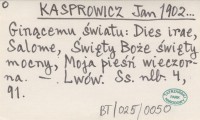 KASPROWICZ Jan 1902...
Ginącemu światu: Dies irae,
Salome, Święty Boże święty
mocny, Moja pieśń wieczor-
na. — Lwów. Ss. nlb. 4,
91.
BT/025/0050